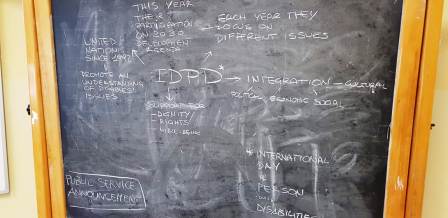 THIS YEAR
THEIR
PARTICIPATION
ON 2030
DEVELOPMENT
AGENDA
EACH YEAR THEY
FOCUS ON
DIFFERENT ISSUES
UNITED
NATIONS
SINCE 1992
PROMOTE AN
UNDERSTANDING
OF DISABILITY
ISSUES
IDPD* → INTEGRATION - CULTURAL
POLITICAL, ECONOMIC SOCIAL
SUPPORT FOR
- DIGNITY
- RIGHTS
- WELL-BEING
* INTERNATIONAL
DAY
PERSON
DISABILITIES
PUBLIC SERVICE
ANNOUNCEMENT